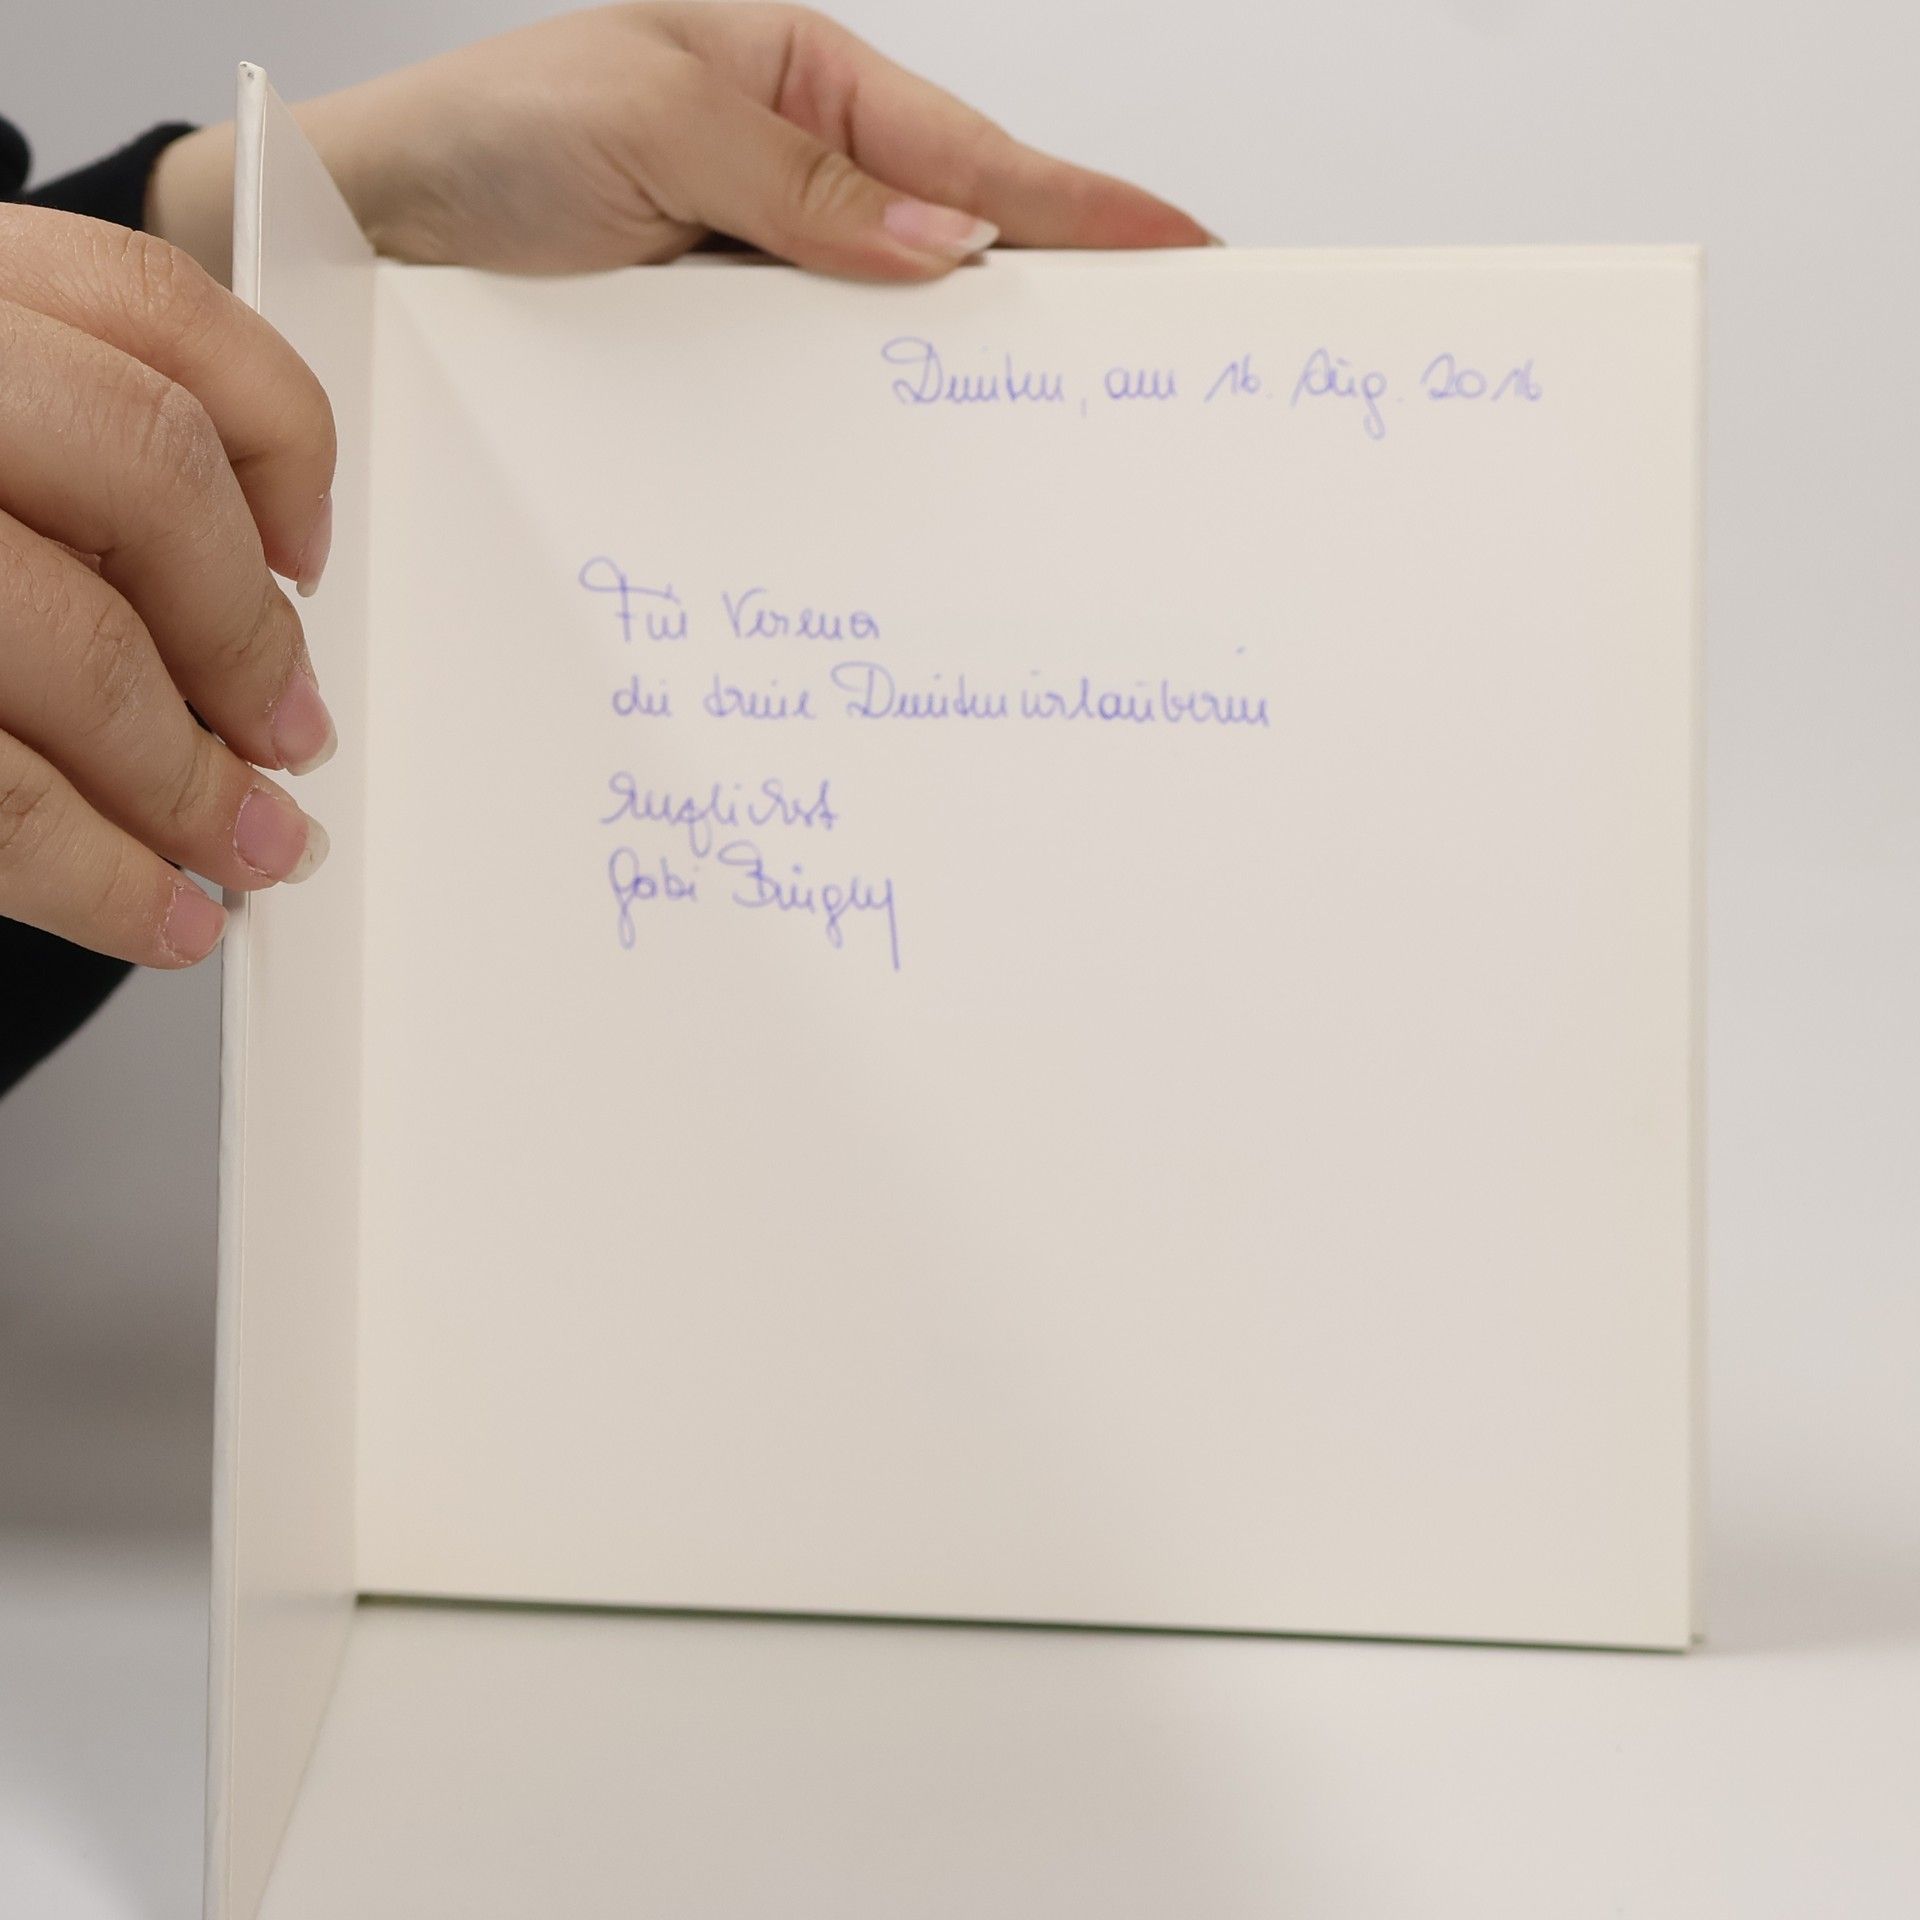 Dienten, am 16. Aug. 2016
Für Verena
die treue Dientenurlauberin
herzlichst
Gabi